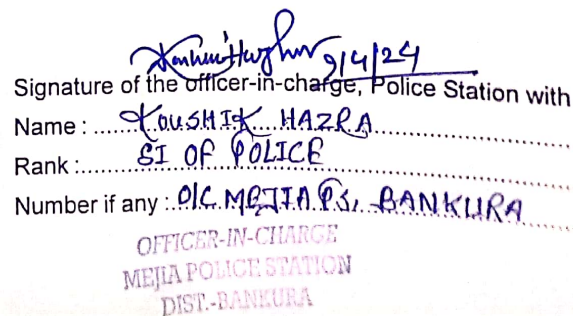 9/4/24
Signature of the officer-in-charge, Police Station with
Name : KOUSHIK HAZRA
Rank : SI OF POLICE
Number if any : O/C MEJIA PS, BANKURA
OFFICER-IN-CHARGE
MEJIA POLICE STATION
DIST.-BANKURA